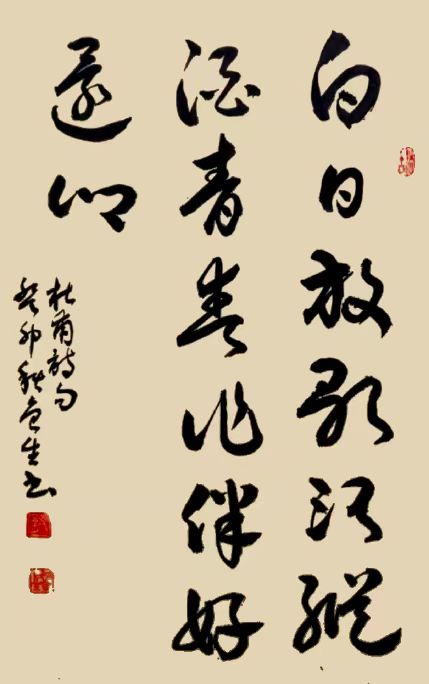 白日放歌須縱
酒青春作伴好
還鄉
杜甫詩句
癸卯秋生书